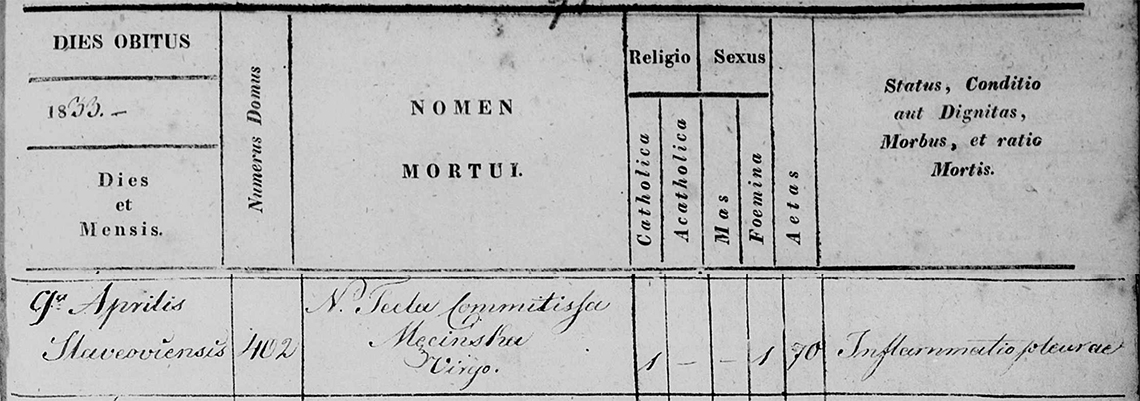 DIES OBITUS
1833.-
Dies
et
Mensis.
Numerus Domus
NOMEN
MORTUI.
Religio
Catholica
Acatholica
Sexus
Mas
Foemina
Aetas
Status, Conditio
aut Dignitas,
Morbus, et ratio
Mortis.
9na Aprilis
402
N. Tecla Commitissa
Męcinska
Virgo.
1 - - 1 70
Inflammatio pleurae